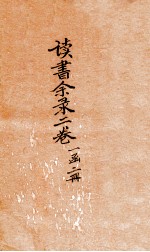 读書余录二卷
一函二冊